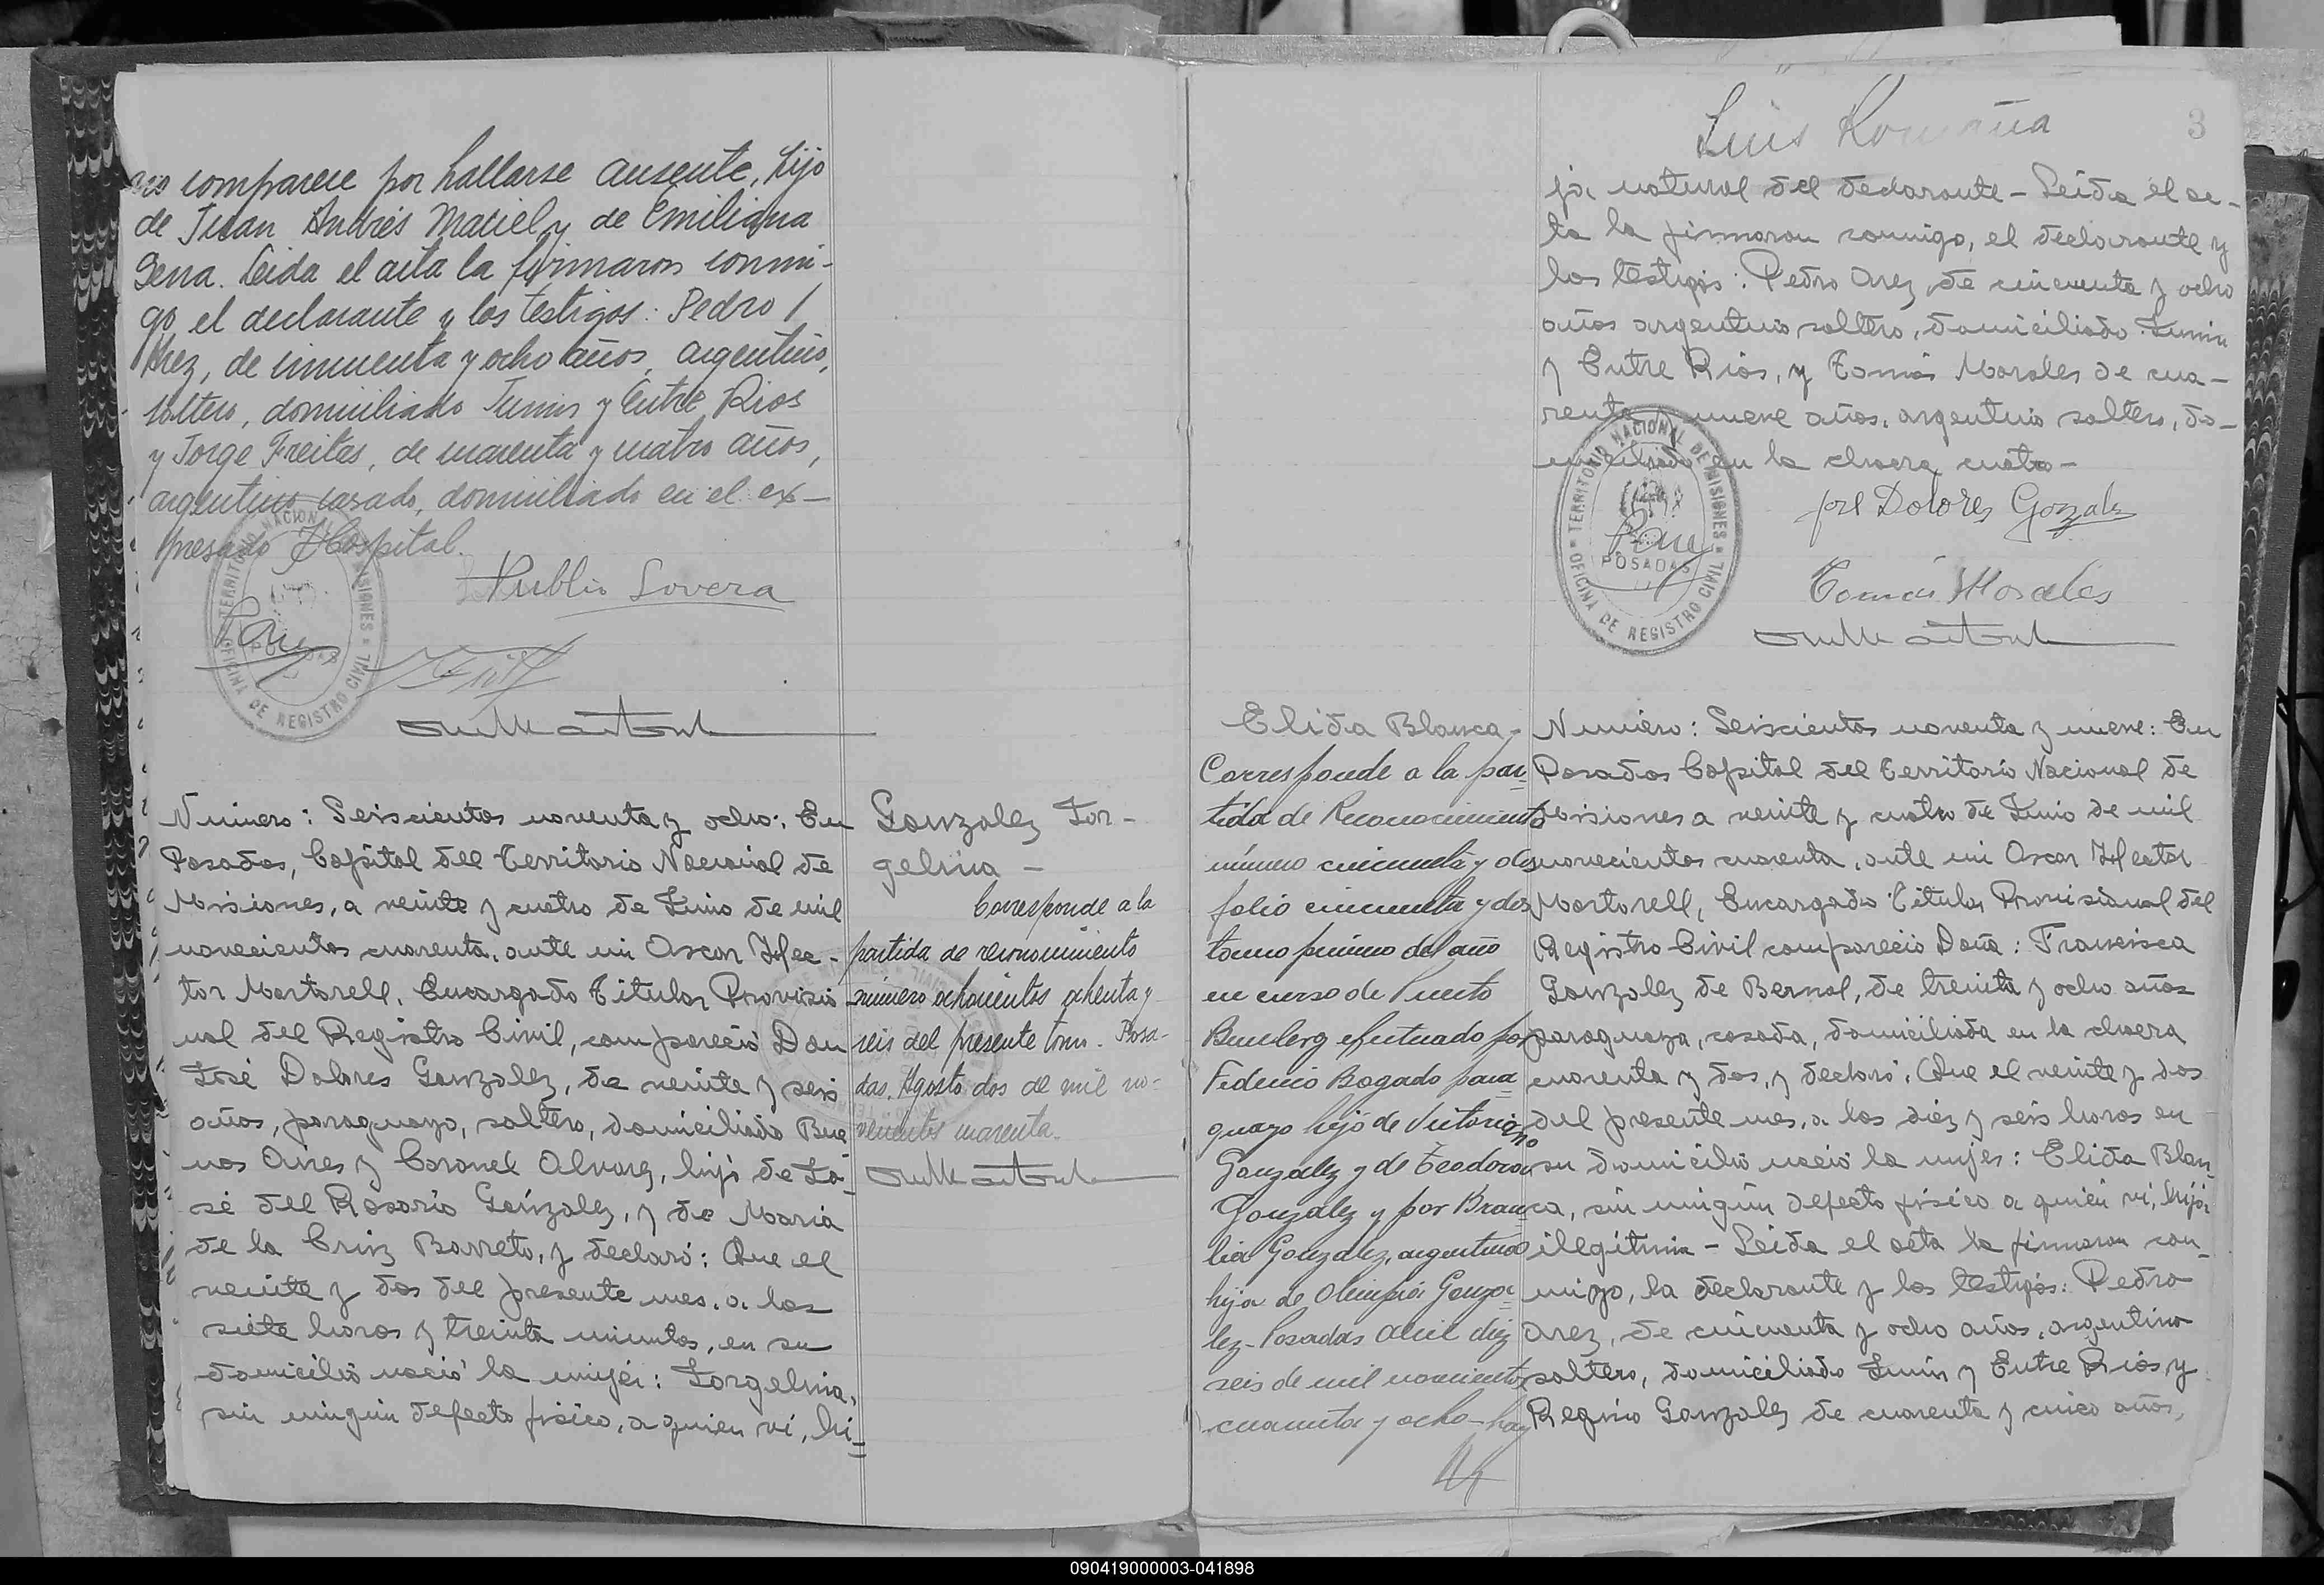 no comparece por hallarse ausente, hijo
de Juan Andrés Maciel y de Emiliana
Sena. Leida el acta la firmaron conmi-
go, el declarante y los testigos: Pedro
Arez, de cincuenta y ocho años, argentino,
soltero, domiciliado Junin y Entre Rios
y Jorge Freitas, de cuarenta y cuatro años,
argentino casado, domiciliado en el ex-
presado Hospital.
Publio Lovera
TERRITORIO NACIONAL DE MISIONES
POSADAS
OFICINA DE REGISTRO CIVIL
Numero: Seiscientos noventa y ocho: En
Posadas, Capital del Territorio Nacional de
Misiones, a veinte y cuatro de Junio de mil
novecientos cuarenta, ante mi Oscar Hec-
tor Martorell, Encargado Titular Provisio
nal del Registro Civil, compareció Don
José Dolores Gonzalez, de veinte y seis
años, paraguayo, soltero, domiciliado Bue
nos Aires y Coronel Alvarez, hijo de Jo-
sé del Rosario Gonzalez, y de Maria
de la Cruz Barreto, y declaró: Que el
veinte y dos del presente mes, a las
siete horas y treinta minutos, en su
domicilio nació la mujer: Jorgelina,
sin ningun defecto fisico, a quien vi, hi-
Gonzalez Jor-
gelina -
Corresponde a la
partida de reconocimiento
número ochocientos ochenta y
seis del presente tomo. Posa-
das, Agosto dos de mil no-
vecientos cuarenta.
Luis Romaña
3
ja natural del declarante - Leida el ac-
ta la firmaron conmigo, el declarante y
los testigos: Pedro Arez, de cincuenta y ocho
años argentino soltero, domiciliado Junin
y Entre Rios, y Tomás Morales de cua-
renta y nueve años, argentino soltero, do-
miciliado en la chacra cuatro -
José Dolores Gonzalez
TERRITORIO NACIONAL DE MISIONES
POSADAS
OFICINA DE REGISTRO CIVIL
Tomás Morales
Elida Blanca -
Corresponde a la par-
tida de Reconocimiento
número cincuenta y dos
folio cincuenta y dos
tomo primero del año
en curso de Puerto
Bemberg efectuado por
Federico Bogado para
guayo hijo de Victoriano
Gonzalez y de Teodora
Gonzalez y por Brau
lia Gonzalez, argentina
hija de Olimpia Gonza
lez - Posadas Abril diez
seis de mil novecientos
cuarenta y ocho - hay
Numero: Seiscientos noventa y nueve: En
Posadas Capital del Territorio Nacional de
Misiones a veinte y cuatro de Junio de mil
novecientos cuarenta, ante mi Oscar Hector
Martorell, Encargado Titular Provisional del
Registro Civil compareció Doña: Francisca
Gonzalez de Bernal, de treinta y ocho años
paraguaya, casada, domiciliada en la chacra
cuarenta y dos, y declaró: Que el veinte y dos
del presente mes, a las diez y seis horas en
su domicilio nació la mujer: Elida Blan-
ca, sin ningún defecto fisico a quien vi, hija
ilegitima - Leida el acta la firmaron con-
migo, la declarante y los testigos: Pedro
Arez, de cincuenta y ocho años, argentino
soltero, domiciliado Junin y Entre Rios y
Regino Gonzalez de cuarenta y cinco años,
090419000003-041898